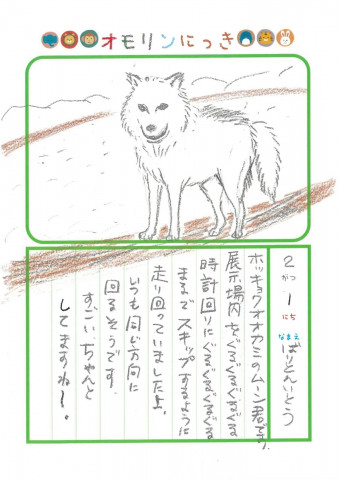 オモリンにっき
2がつ1にち
なまえ ばりとんいとう
ホッキョクオオカミのムーン君です。
展示場内をぐるぐるぐるぐる
時計回りにぐるぐるぐるぐる
まるでスキップするように
走り回っていましたよ。
いつも同じ方向に
回るそうです。
すごいちゃんと
してますね〜。